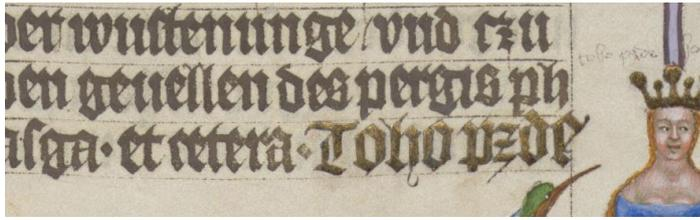 der wustenunge vnd czu
den geuellen des pergis ph
asga · et cetera · Toho pzde
toho pzde